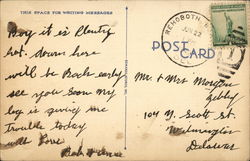 THIS SPACE FOR WRITING MESSAGES
Boy it is Plenty
hot. down here
will be Back early
see you soon my
leg is giving me
trouble today
will Love
REHOBOTH
POST CARD
Mr & Mrs Morgan
104 N. Scott St.
Wilmington
Delaware